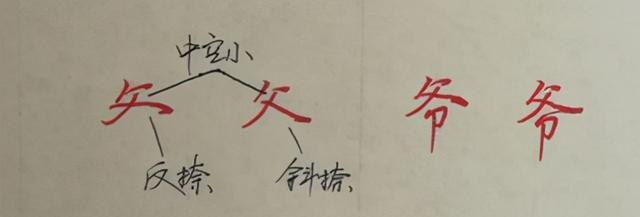 中空小
父 父 爷 爷
反捺 斜捺